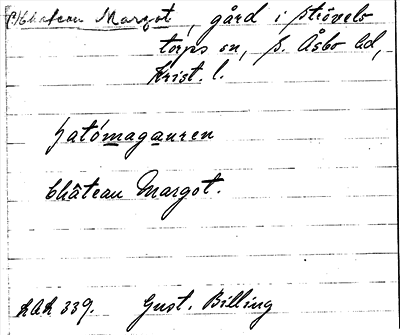 Château Margot, gård i Strövels-
torps sn, S. Åsbo hd,
Krist. l.
Château Margot.
LAL 339. Gust. Billing